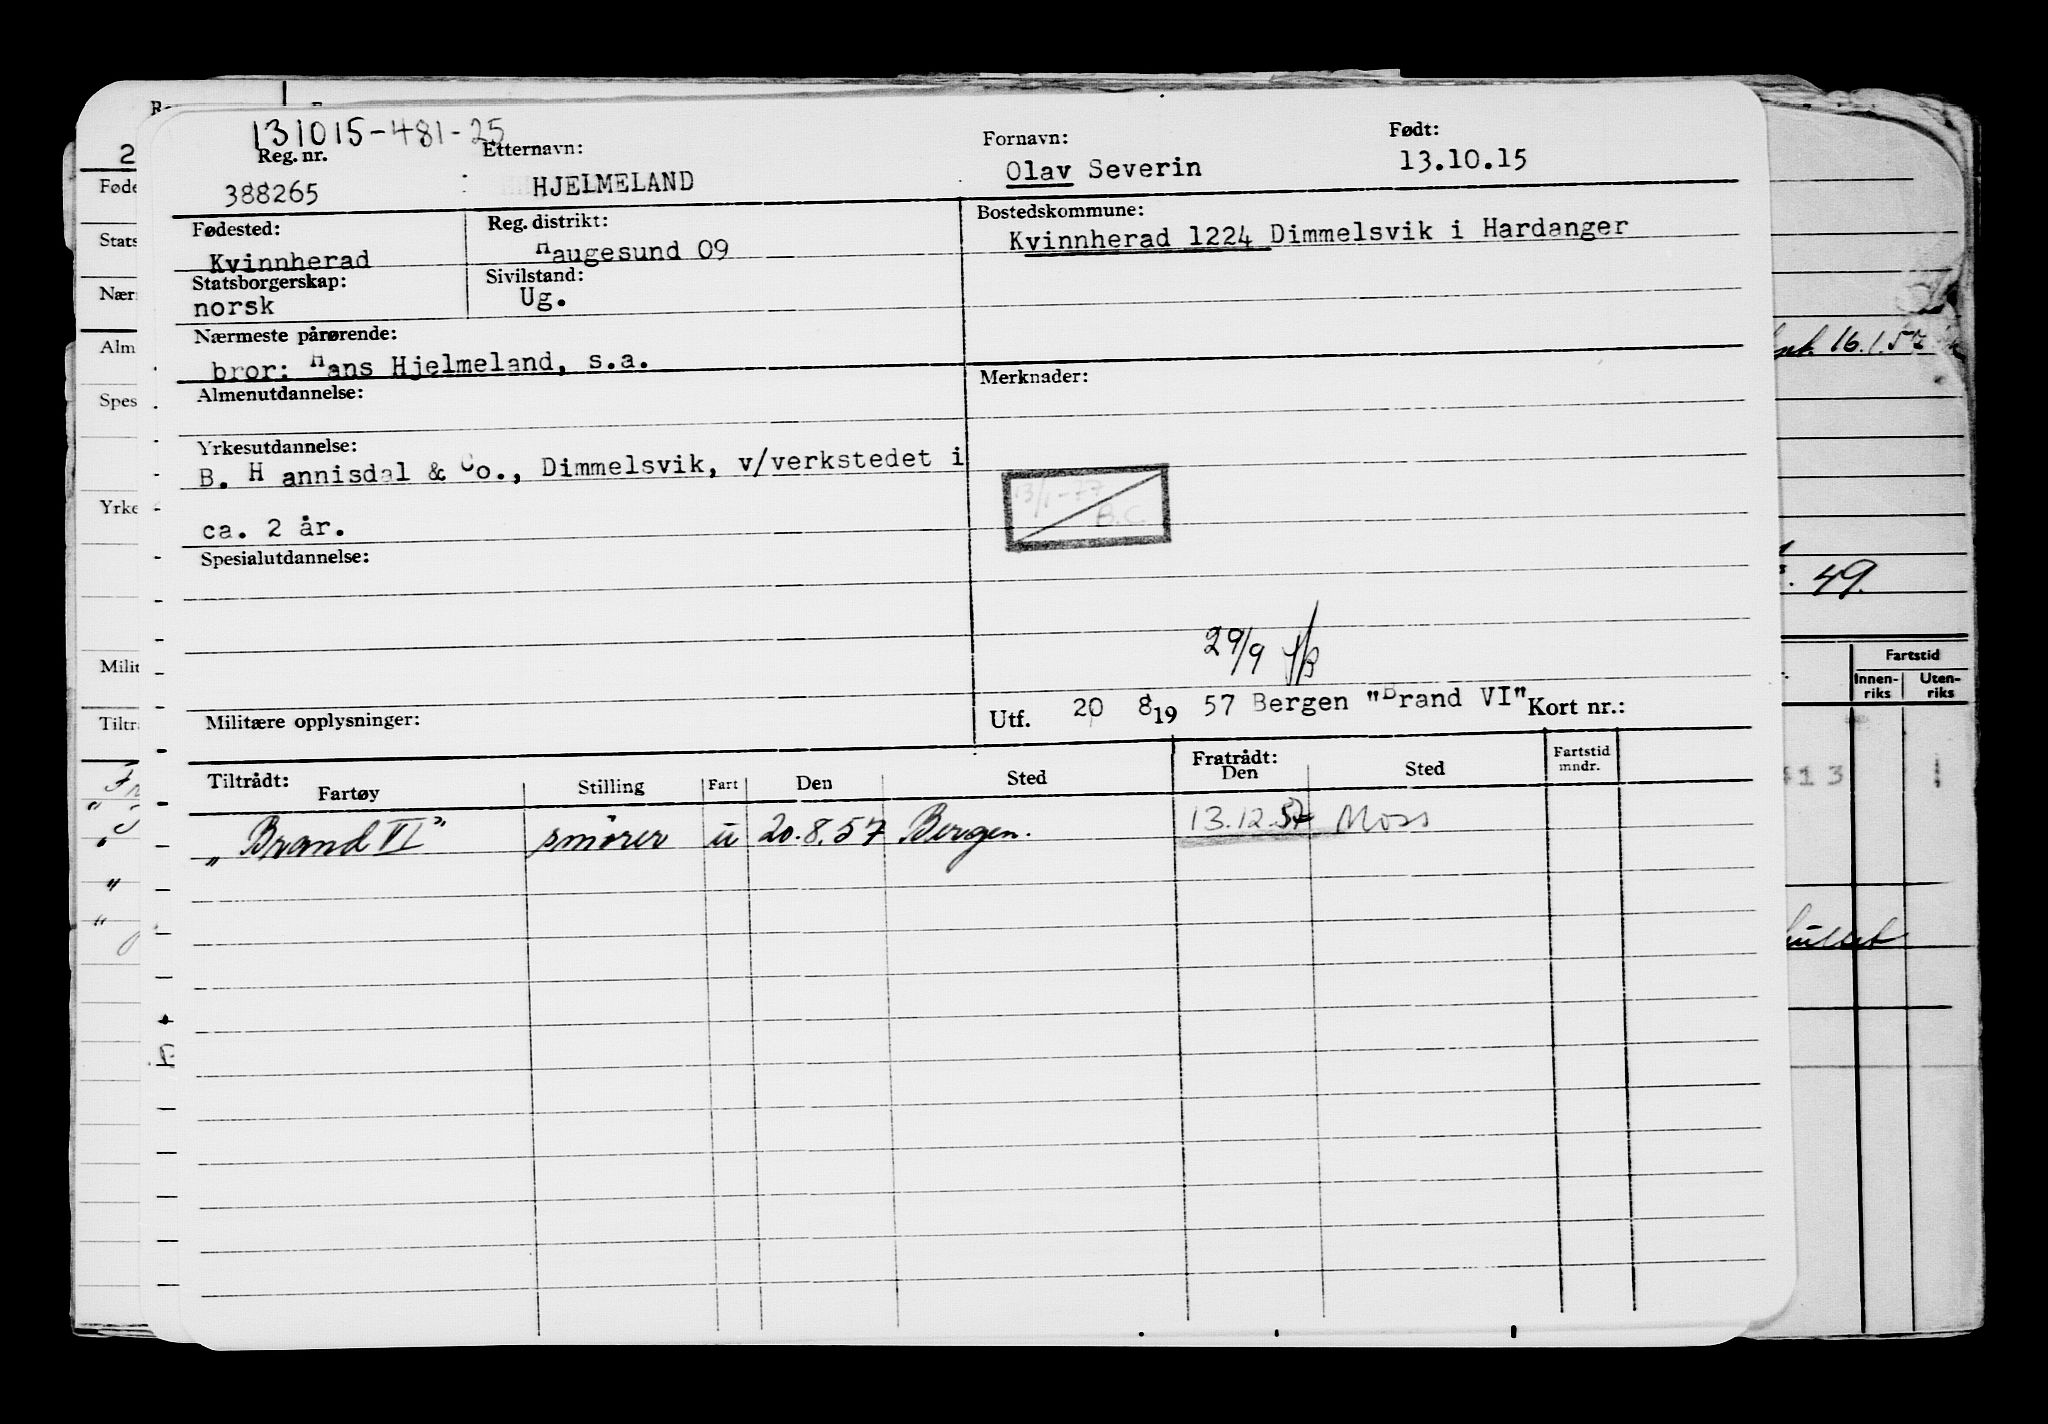 131015-481-25
Reg. nr. Etternavn: Fornavn: Født:
388265 HJELMELAND Olav Severin 13.10.15
Fødested: Reg. distrikt: Bostedskommune:
Kvinnherad Haugesund 09 Kvinnherad 1224 Dimmelsvik i Hardanger
Statsborgerskap: Sivilstand:
norsk Ug.
Nærmeste pårørende:
bror: Hans Hjelmeland, s.a.
Almenutdannelse: Merknader:
Yrkesutdannelse:
B. Hannisdal & Co., Dimmelsvik, v/verkstedet i
13/1-77
B.C.
ca. 2 år.
Spesialutdannelse:
29/9
Militære opplysninger: Utf. 20 8 19 57 Bergen "Brand VI" Kort nr.:
Tiltrådt: Fratrådt: Fartstid
Fartøy Stilling Fart Den Sted Den Sted mndr.
"Brand VI" smører u 20.8.57 Bergen. 13.12.57 Moss
Føde
Stats
Nær
Alm
Spes
Yrke
Milit
Tiltr
16.1.57
49.
Fartstid
Innen-riks Uten-riks
13